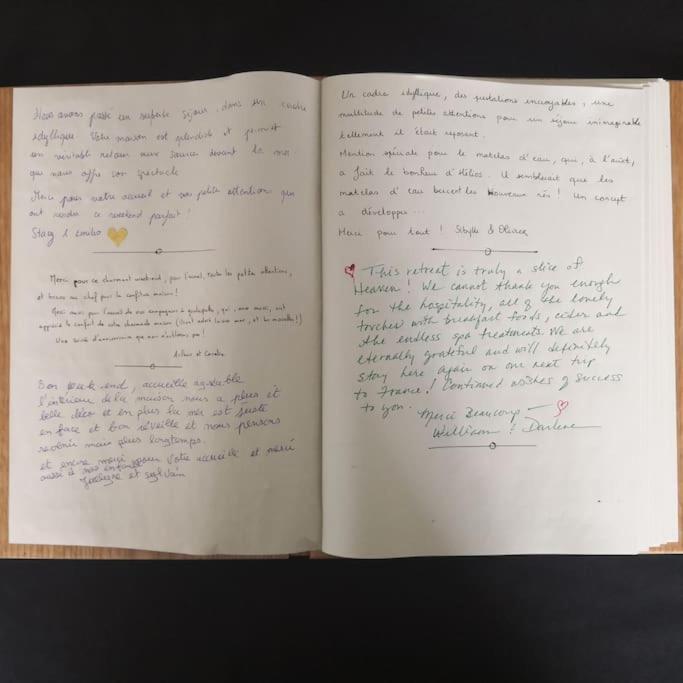 Nous avons passé un superbe séjour, dans un cadre
idyllique. Votre maison est splendide et permet
un véritable retour aux sources devant la mer
qui nous offre son spectacle
Merci pour votre accueil et vos petites attentions qui
ont rendu ce weekend parfait !
Stacy & Emilio
Merci pour ce charmant week-end, pour l'accueil, toutes les petites attentions,
et bravo au chef pour la confiture maison !
Merci aussi pour l'accueil de nos compagnons à quatre pattes, qui, eux aussi, ont
apprécié le confort de votre charmante maison (ils ont adoré la vue mer, et les mouettes !)
Une soirée d'anniversaire que nous n'oublierons pas !
Arthur et Coralie
Bon week-end, accueille agréable
l'intérieur de la maison nous a plus et
belle déco et en plus la mer est juste
en face et bon réveille et nous pensons
revenir mais plus longtemps.
et encore merci pour votre accueille et merci
aussi à
et sylvain
Un cadre idyllique, des prestations incroyables, une
multitude de petites attentions pour un séjour inimaginable
tellement il était reposant.
Mention spéciale pour le matelas d'eau, qui, à l'ouest,
a fait le bonheur d'Hélios. Il semblerait que les
matelas d'eau bercent les nouveaux nés ! Un concept
a développer ...
Merci pour tout ! Sibylle & Olivier
This retreat is truly a slice of
Heaven! We cannot thank you enough
for the hospitality, all of the lovely
touches with breakfast foods, cider and
the endless spa treatments. We are
eternally grateful and will definitely
stay here again on our next trip
to France! Continued wishes of success
to you.
Merci Beaucoup —
William & Darlene